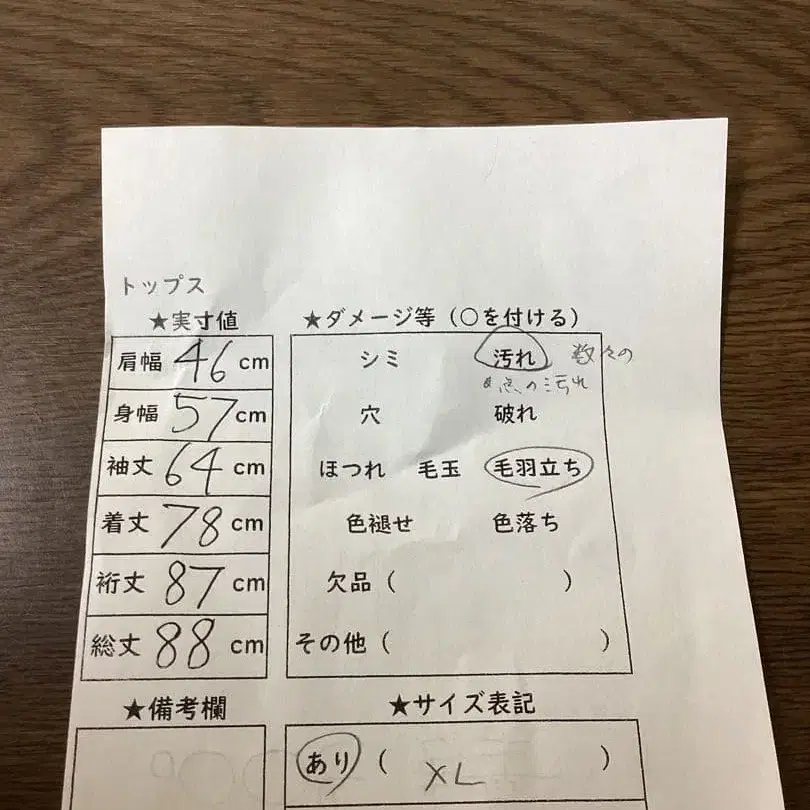 トップス
★実寸値
肩幅 46 cm
身幅 57 cm
袖丈 64 cm
着丈 78 cm
裄丈 87 cm
総丈 88 cm
★備考欄
★ダメージ等（○を付ける）
シミ 汚れ 数々の
点の汚れ
穴 破れ
ほつれ 毛玉 毛羽立ち
色褪せ 色落ち
欠品（ ）
その他（ ）
★サイズ表記
あり（ XL ）